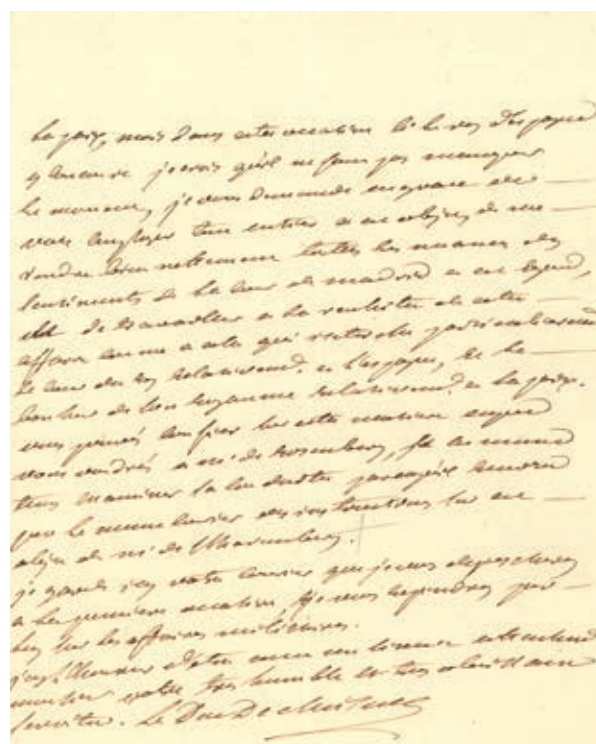 la paix, mais dans cette occasion si le roy d'espagne
y je crois qu'il ne faut pas menager
le moment, je vous demande en grace de
vous employer tout entier a cet objet, de me
rendre bien nettement toutes les nuances des
sentiments de la cour de madrid a cet egard,
et de travailler a la reussite de cette
affaire comme a celle qui interesse particulierement
le coeur du roy relativement a l'espagne, et le
bonheur de son royaume relativement a la paix.
vous pouvés confier cette
vous voudrés a mr de Rosemberg, et en meme
tems sa conduite
par le meme courier des instructions sur cet
objet de mr de
je garde icy votre courier que je vous depescheray
a la premiere occasion, et je vous repondray par
luy sur les affaires militaires.
j'ay l'honneur d'etre avec un sincere attachement
monsieur votre tres humble et tres obeissant
serviteur. Le Duc De choiseul